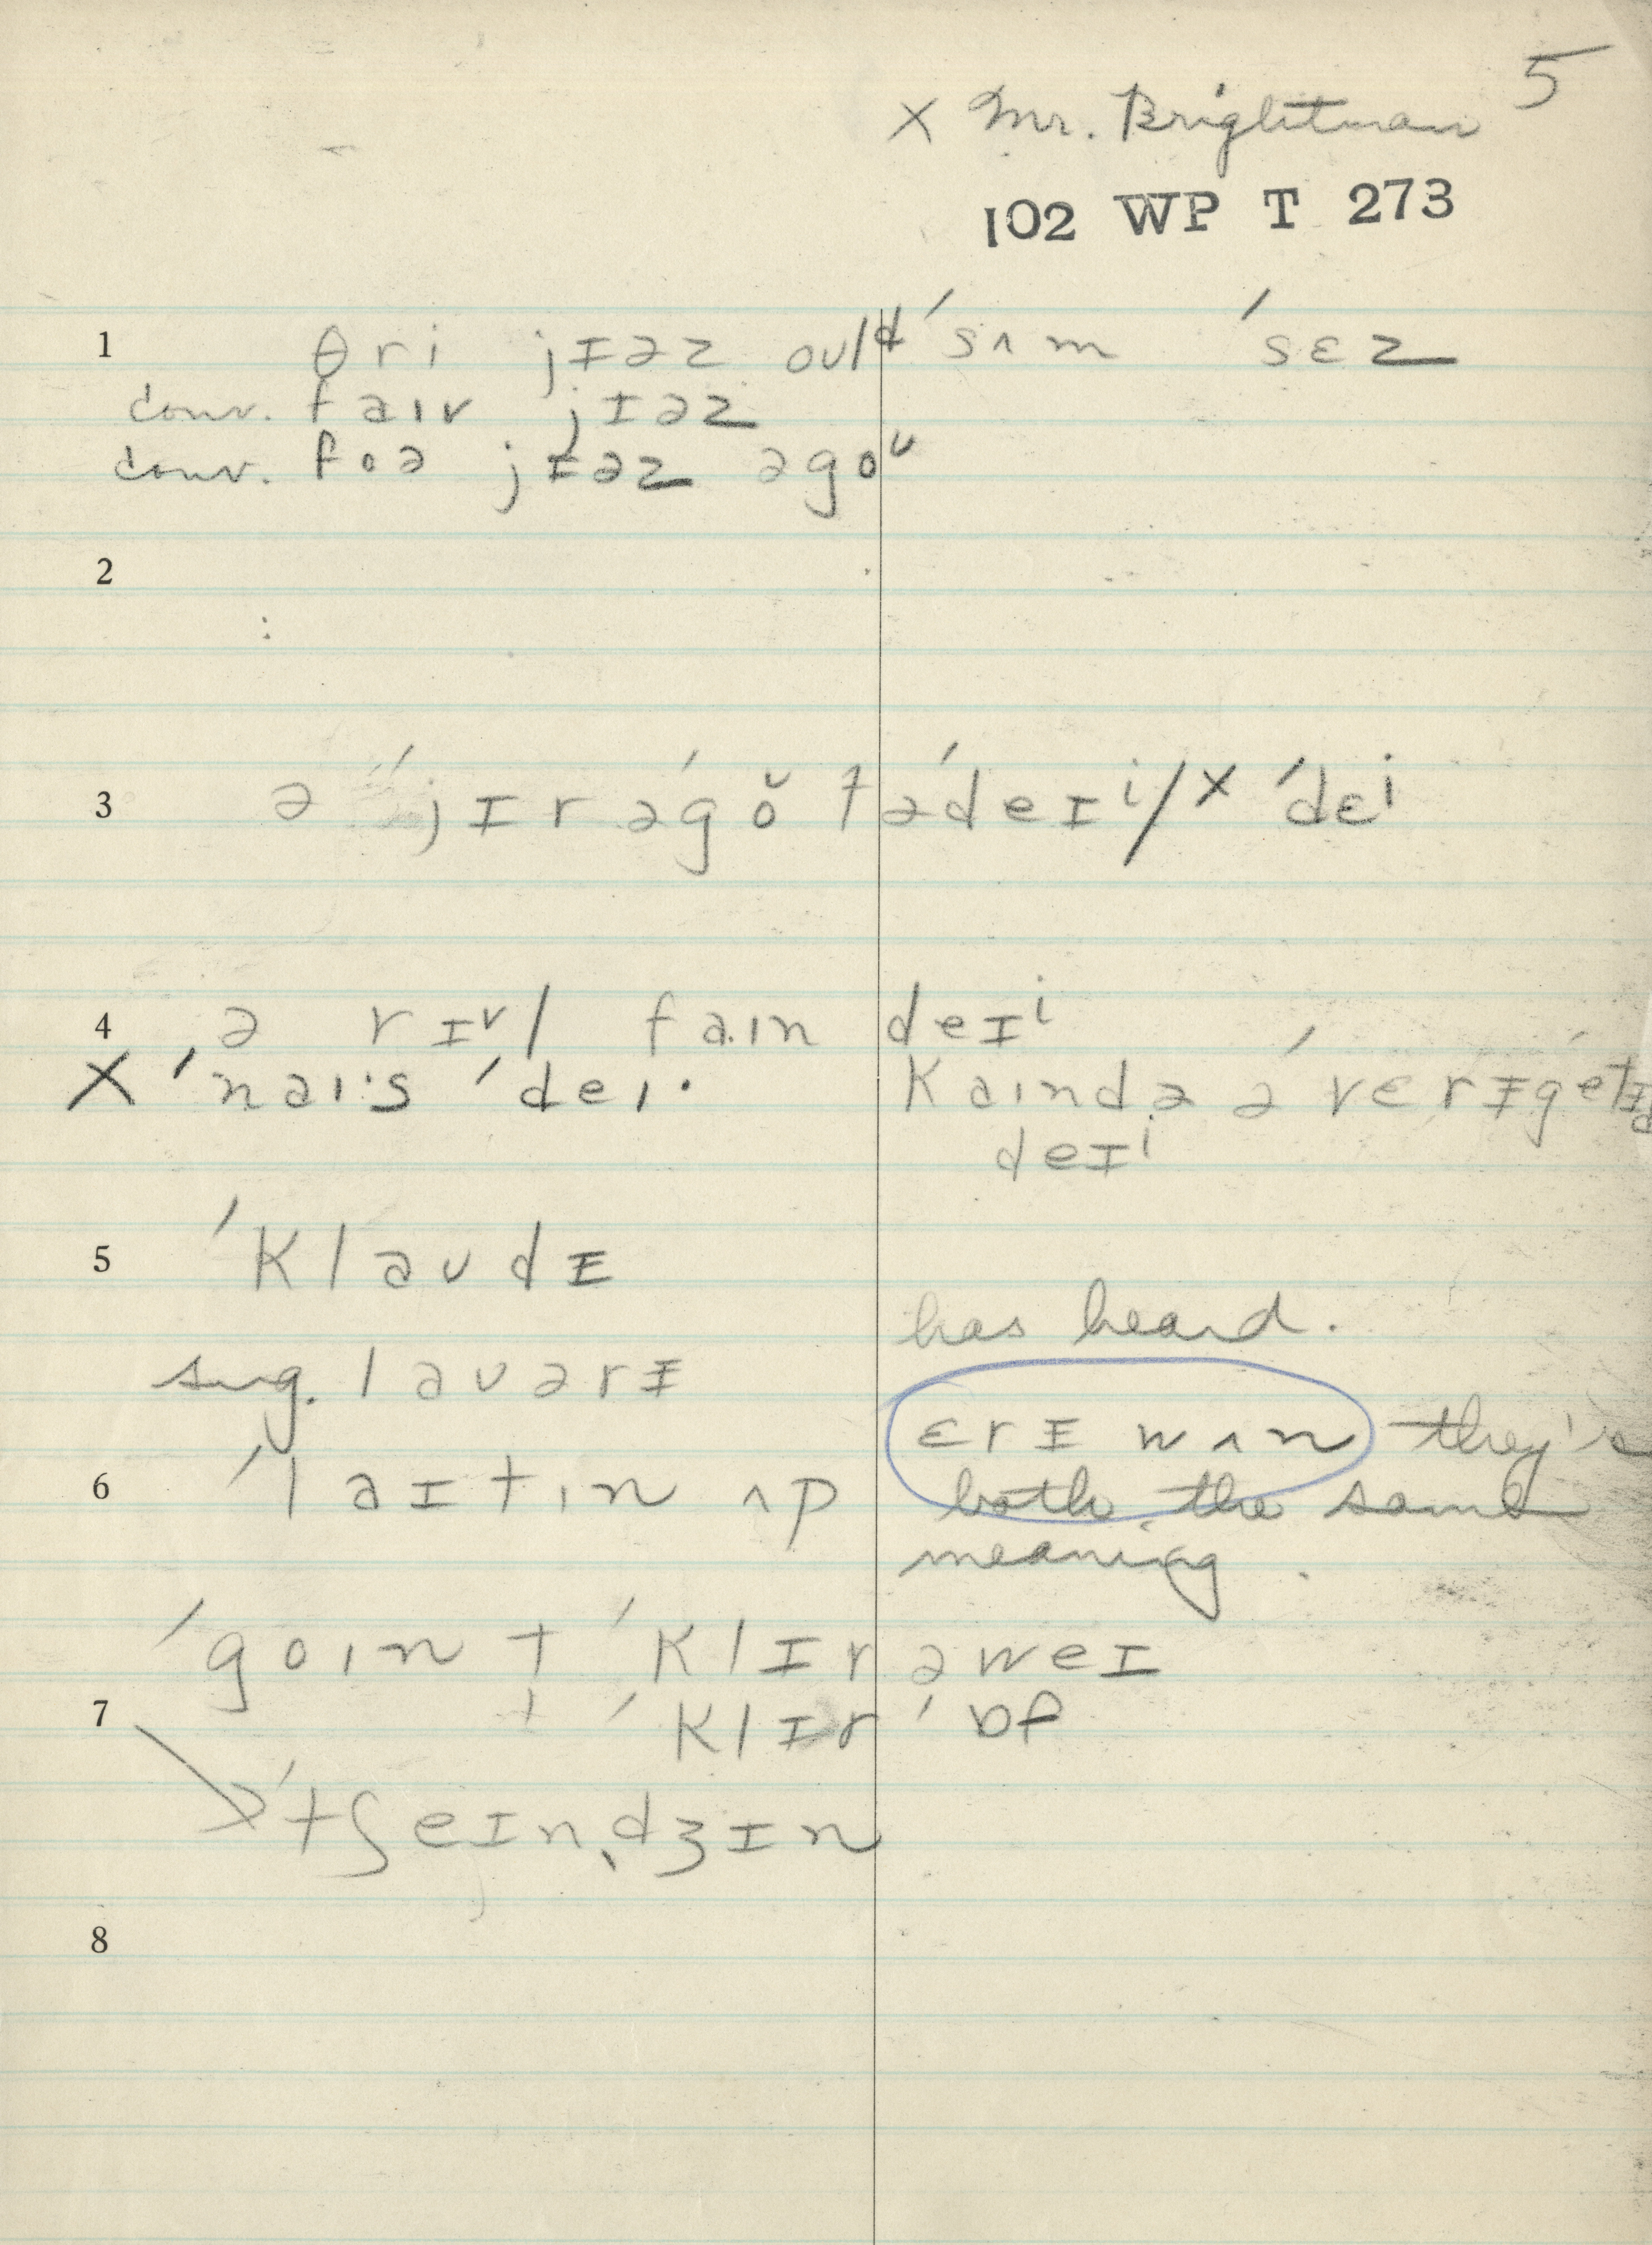 5
x Mr. Brightman
102 WP T 273
1 θri jɪəz ould ˈsʌm ˈsɛz
conv. faiv jɪəz
conv. foə jɪəz əgoᵘ
2
3 ə ˈjɪrəˈgŏ təˈdeɪⁱ/x ˈdɛⁱ
4 ə rɪᵛl fa.in deɪⁱ
X ˈnaiˑs ˈdeiˑ Kaində əˈverɪgétɪd
deɪⁱ
5 ˈKlaudɪ
has heard.
sug. lauərɪ
ɛrɪ wʌn they's
6 ˈlaɪtin ʌp both the same
meaning.
ˈgoin t ˈKlɪr əweɪ
7 t ˈKlɪr ˈɒf
xˈtʃeɪnˌdʒɪn
8